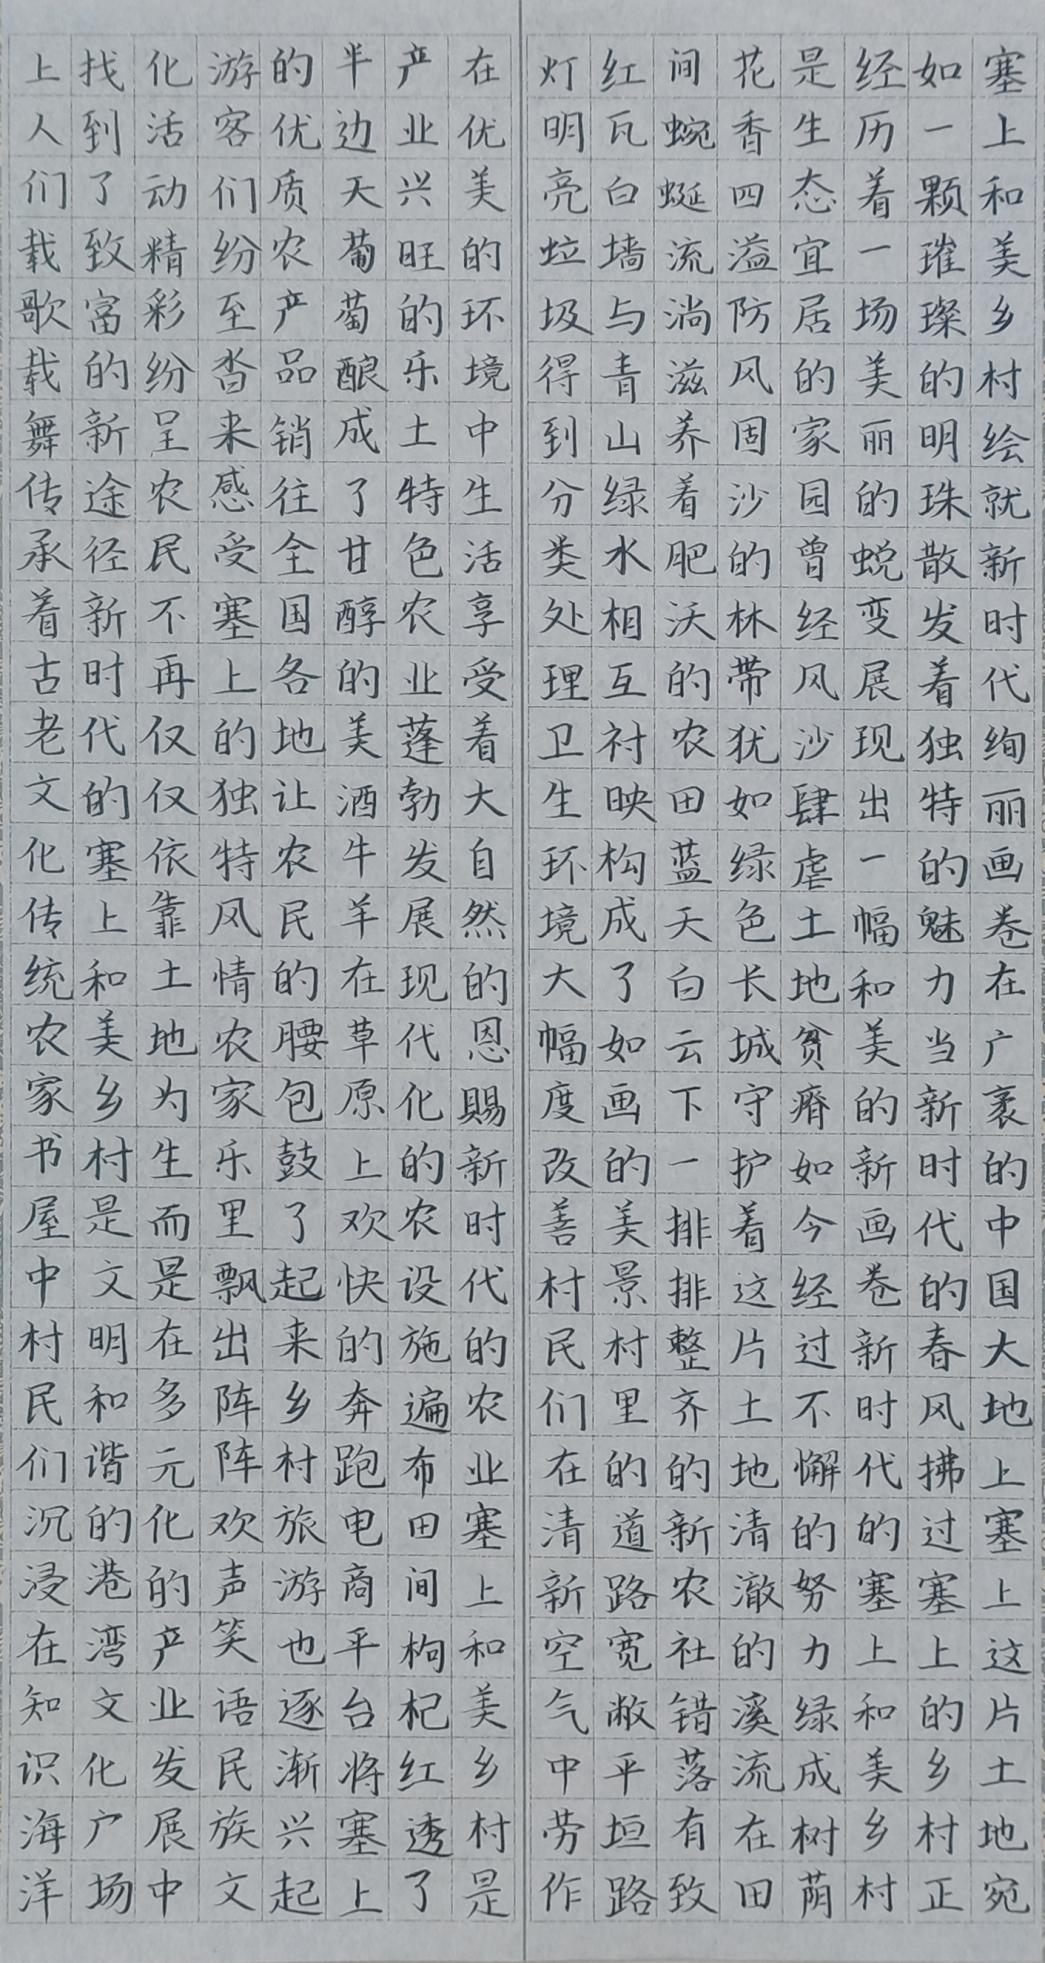 塞上和美乡村绘就新时代绚丽画卷在广袤的中国大地上塞上这片土地宛
如一颗璀璨的明珠散发着独特的魅力当新时代的春风拂过塞上的乡村正
经历着一场美丽的蜕变展现出一幅和美的新画卷新时代的塞上和美乡村
是生态宜居的家园曾经风沙肆虐土地贫瘠如今经过不懈的努力绿成树荫
花香四溢防风固沙的林带犹如绿色长城守护着这片土地清澈的溪流在田
间蜿蜒流淌滋养着肥沃的农田蓝天白云下一排排整齐的新农社错落有致
红瓦白墙与青山绿水相互衬映构成了如画的美景村里的道路宽敞平垣路
灯明亮垃圾得到分类处理卫生环境大幅度改善村民们在清新空气中劳作
在优美的环境中生活享受着大自然的恩赐新时代的农业塞上和美乡村是
产业兴旺的乐土特色农业蓬勃发展现代化的农设施遍布田间枸杞红透了
半边天葡萄酿成了甘醇的美酒牛羊在草原上欢快的奔跑电商平台将塞上
的优质农产品销往全国各地让农民的腰包鼓了起来乡村旅游也逐渐兴起
游客们纷至沓来感受塞上的独特风情农家乐里飘出阵阵欢声笑语民族文
化活动精彩纷呈农民不再仅仅依靠土地为生而是在多元化的产业发展中
找到了致富的新途径新时代的塞上和美乡村是文明和谐的港湾文化广场
上人们载歌载舞传承着古老文化传统农家书屋中村民们沉浸在知识海洋